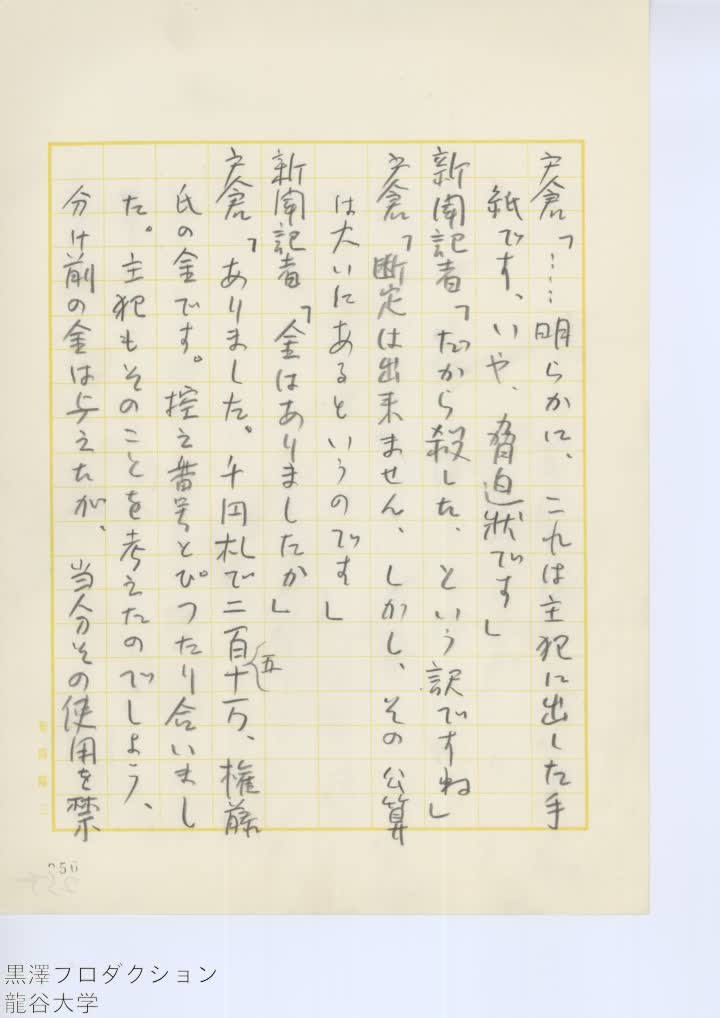 戸倉「……明らかに、これは主犯に出した手
紙です、いや、脅迫状です」
新聞記者「だから殺した、という訳ですね」
戸倉「断定は出来ません、しかし、その公算
は大いにあるというのです」
新聞記者「金はありましたか」
戸倉「ありました。千円札で二百五十万、権藤
氏の金です。控え番号とぴつたり合いまし
た。主犯もそのことを考えたのでしよう、
分け前の金は与えたが、当分その使用を禁
250
黒澤プロダクション
龍谷大学